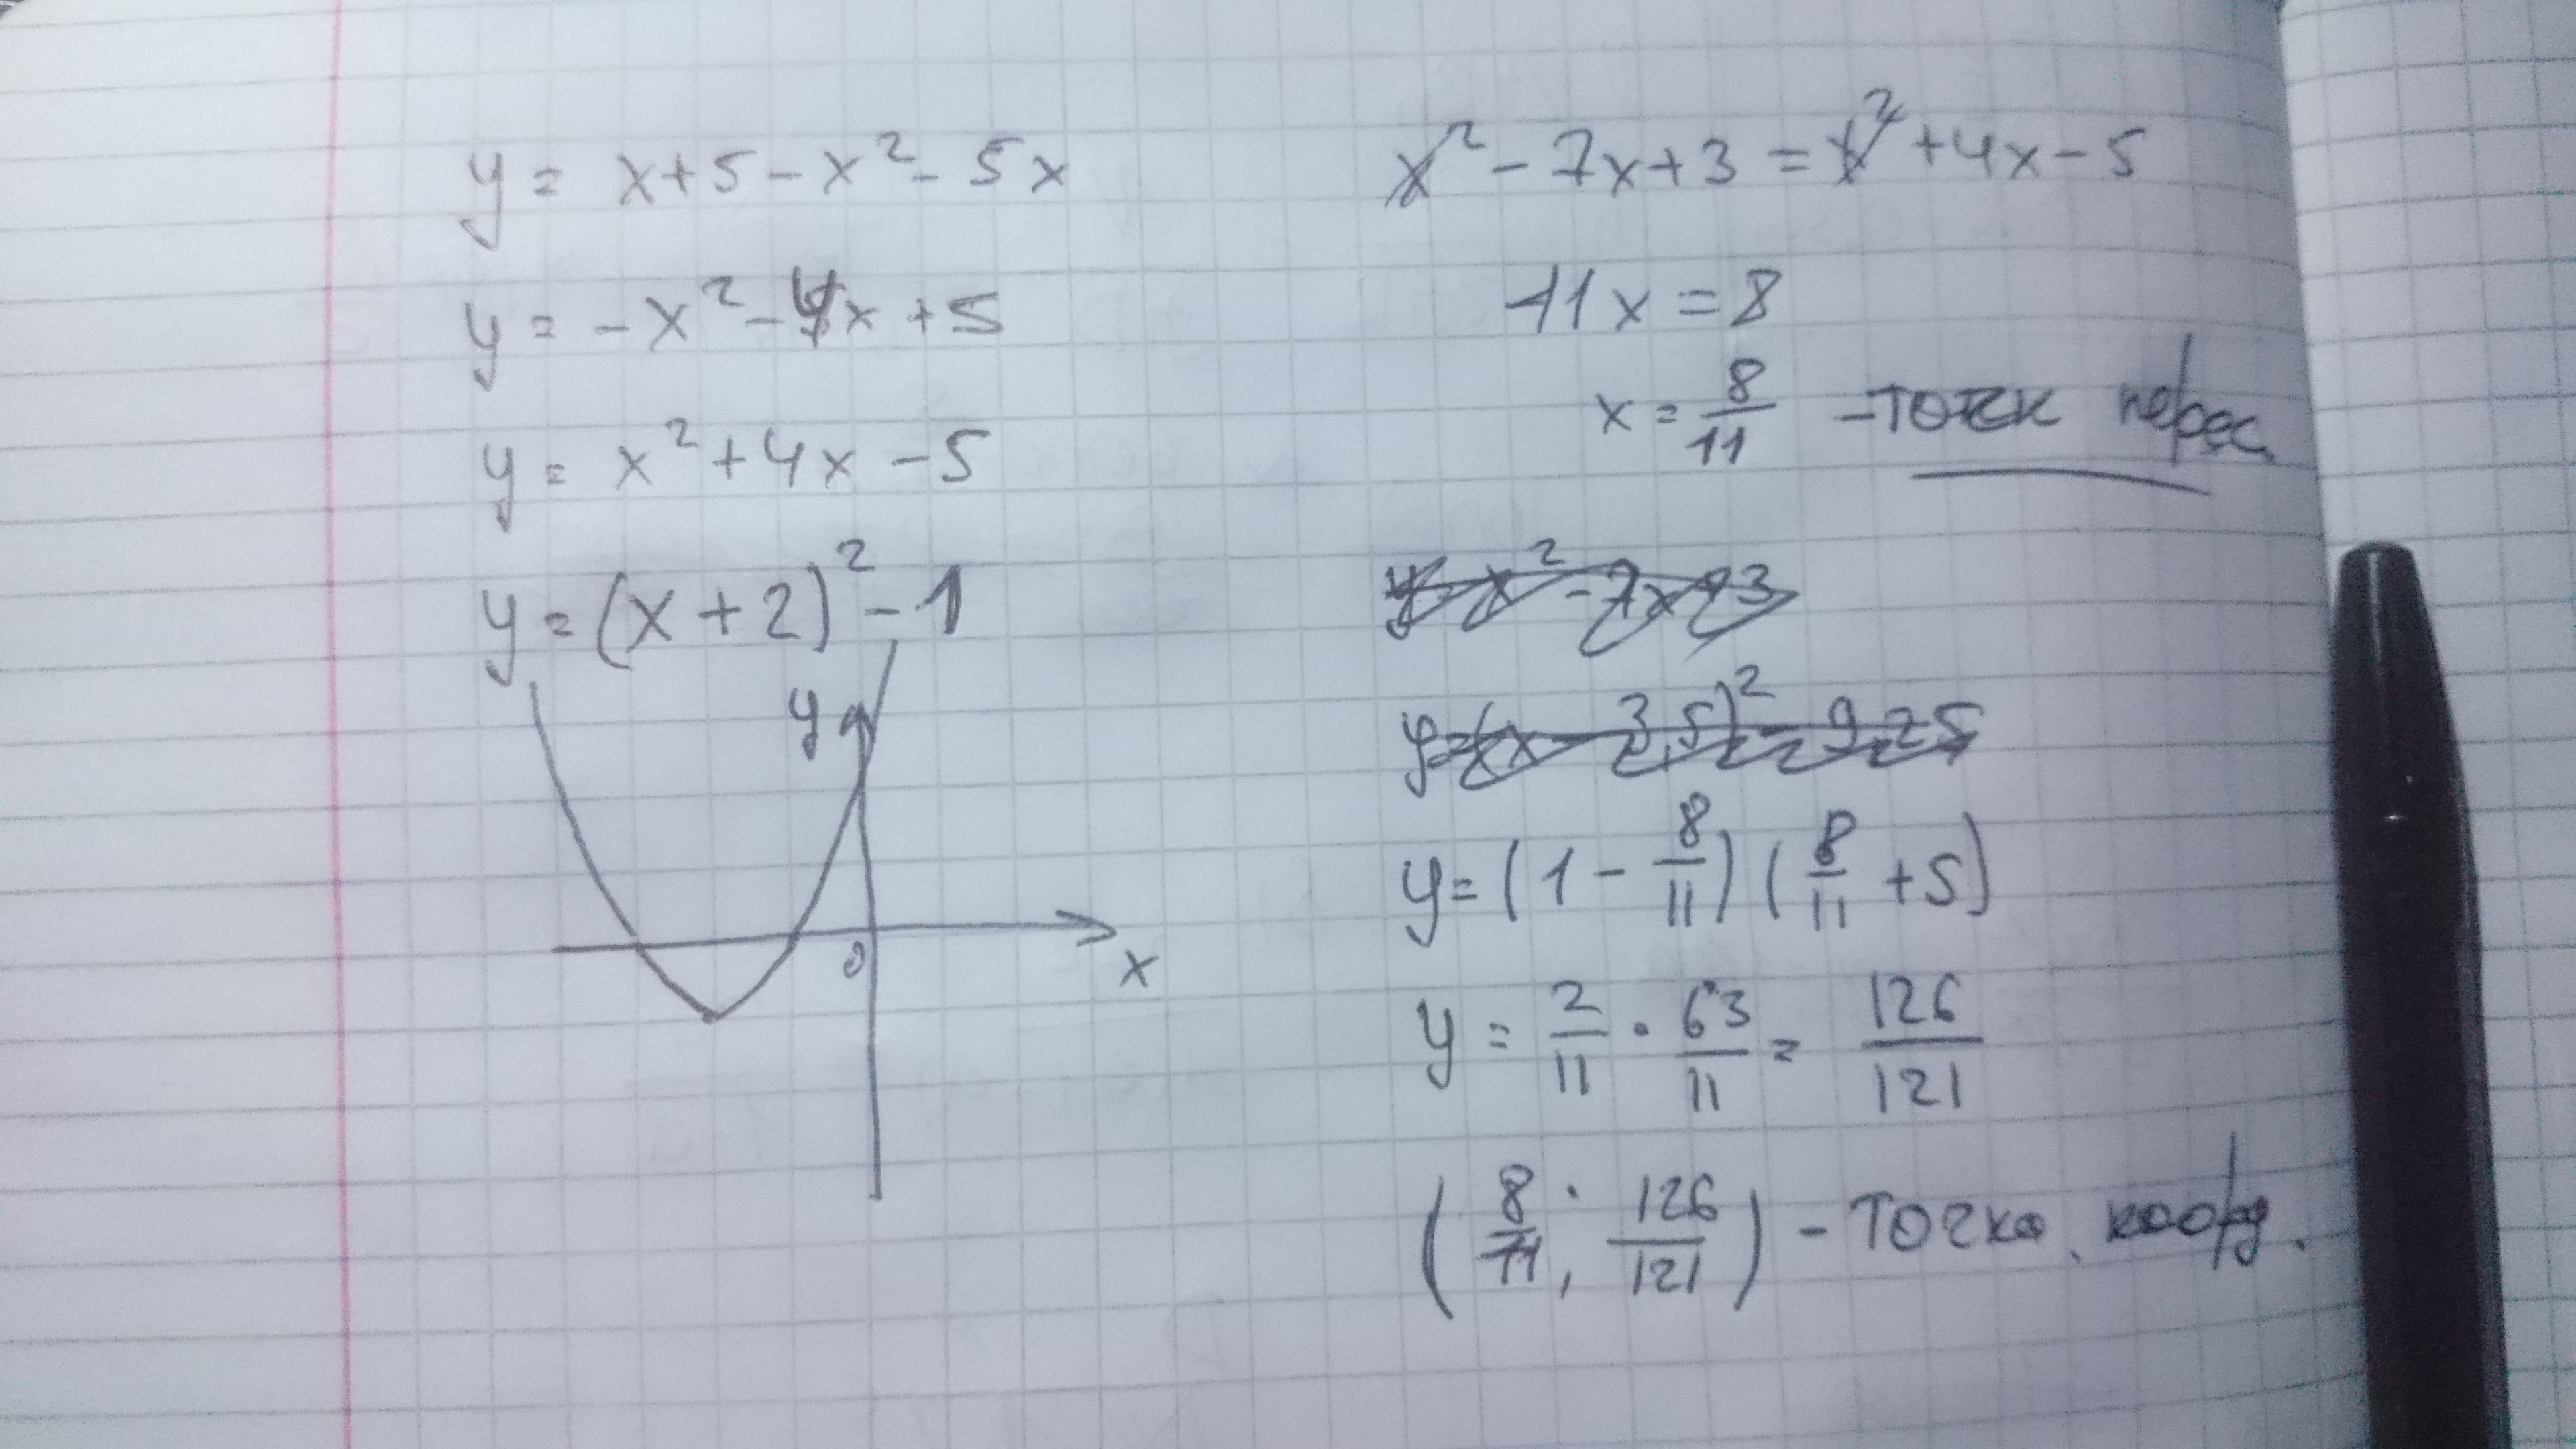 y = x+5-x²-5x
y = -x²-4x+5
y = x²+4x-5
y = (x+2)²-1
y
0
x
x²-7x+3=x²+4x-5
11x=8
x = 8/11 - точк перес.
y=x²-7x+3
y=(x-3,5)²-9,25
y=(1-8/11)(8/11+5)
y = 2/11 · 63/11 = 126/121
(8/11; 126/121) - точка. коорд.